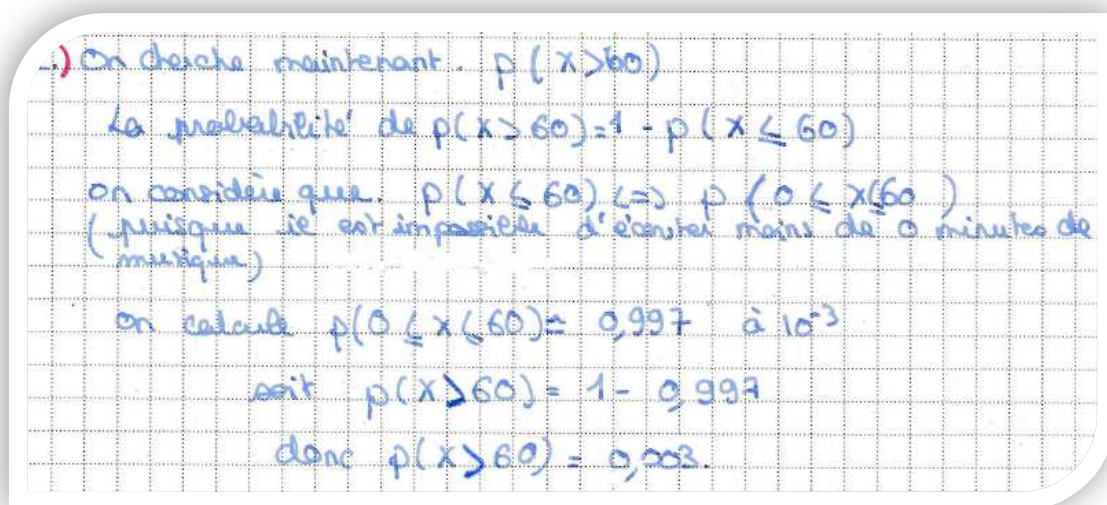 ..) On cherche maintenant. p(X>60)
La probabilité de p(X>60)=1-p(X≤60)
on considère que. p(X≤60) <=> p(0≤X≤60)
(puisque il est impossible d'écouter moins de 0 minutes de
musique)
on calcule p(0≤X≤60)= 0,997 à 10⁻³
soit p(X>60)= 1- 0,997
donc p(X>60) = 0,003.